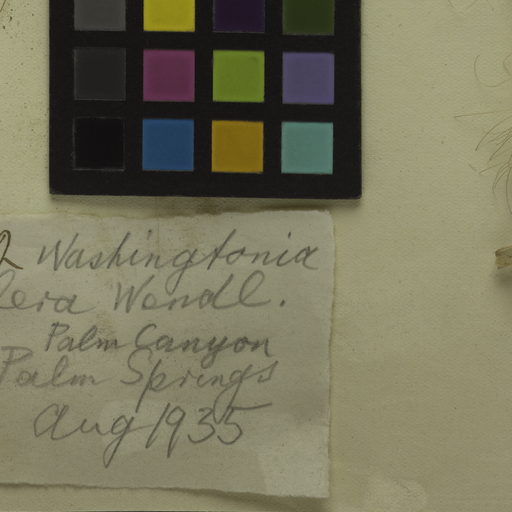 Washingtonia
lera Wendl.
Palm Canyon
Palm Springs
Aug 1935